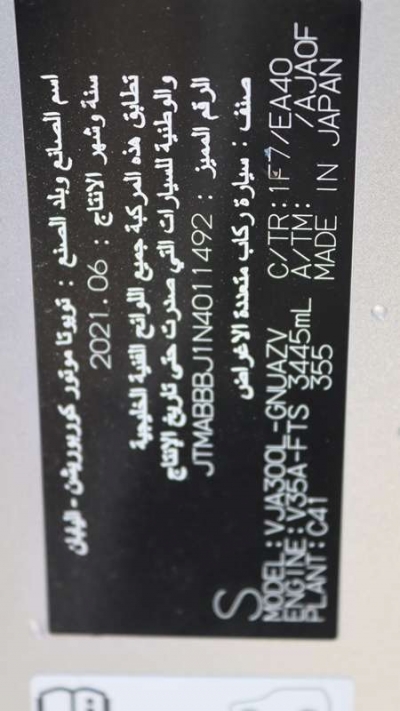 اسم الصانع وبلد الصنع : تويوتا موتور كوربوريشن - اليابان
سنة وشهر الانتاج : 2021.06
تطابق هذه المركبة جميع اللوائح الفنية الخليجية
والوطنية للسيارات التي صدرت حتى تاريخ الإنتاج
الرقم المميز : JTMABBBJ1N4011492
صنف : سيارة ركاب متعددة الاغراض
S
MODEL: VJA300L-GNUAZV C/TR: 1F7/EA40
ENGINE: V35A-FTS 3445mL A/TM: /AJA0F
PLANT: C41 355 MADE IN JAPAN